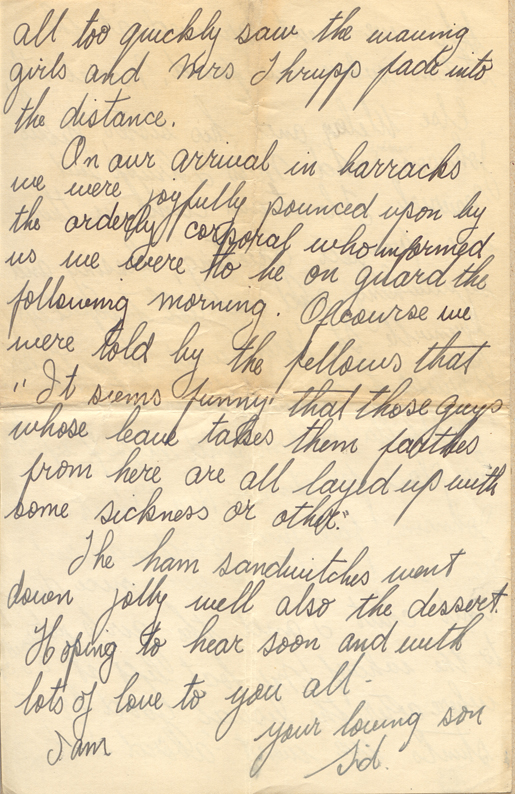 all too quickly saw the waving
girls and Mrs Thrupp fade into
the distance.
On our arrival in barracks
we were joyfully pounced upon by
the orderly corporal who informed
us we were to be on guard the
following morning. Ofcourse we
were told by the fellows that
"It siems funny that those guys
whose leave takes them farther
from here are all layed up with
some sickness or other."
The ham sandwitches went
down jolly well also the dessert.
Hoping to hear soon and with
lots of love to you all -
I am your loving son
Sid.